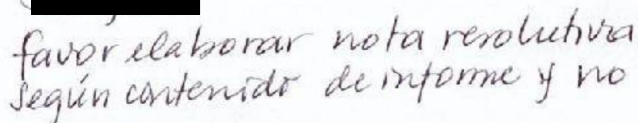 favor elaborar nota resolutiva
según contenido de informe y no